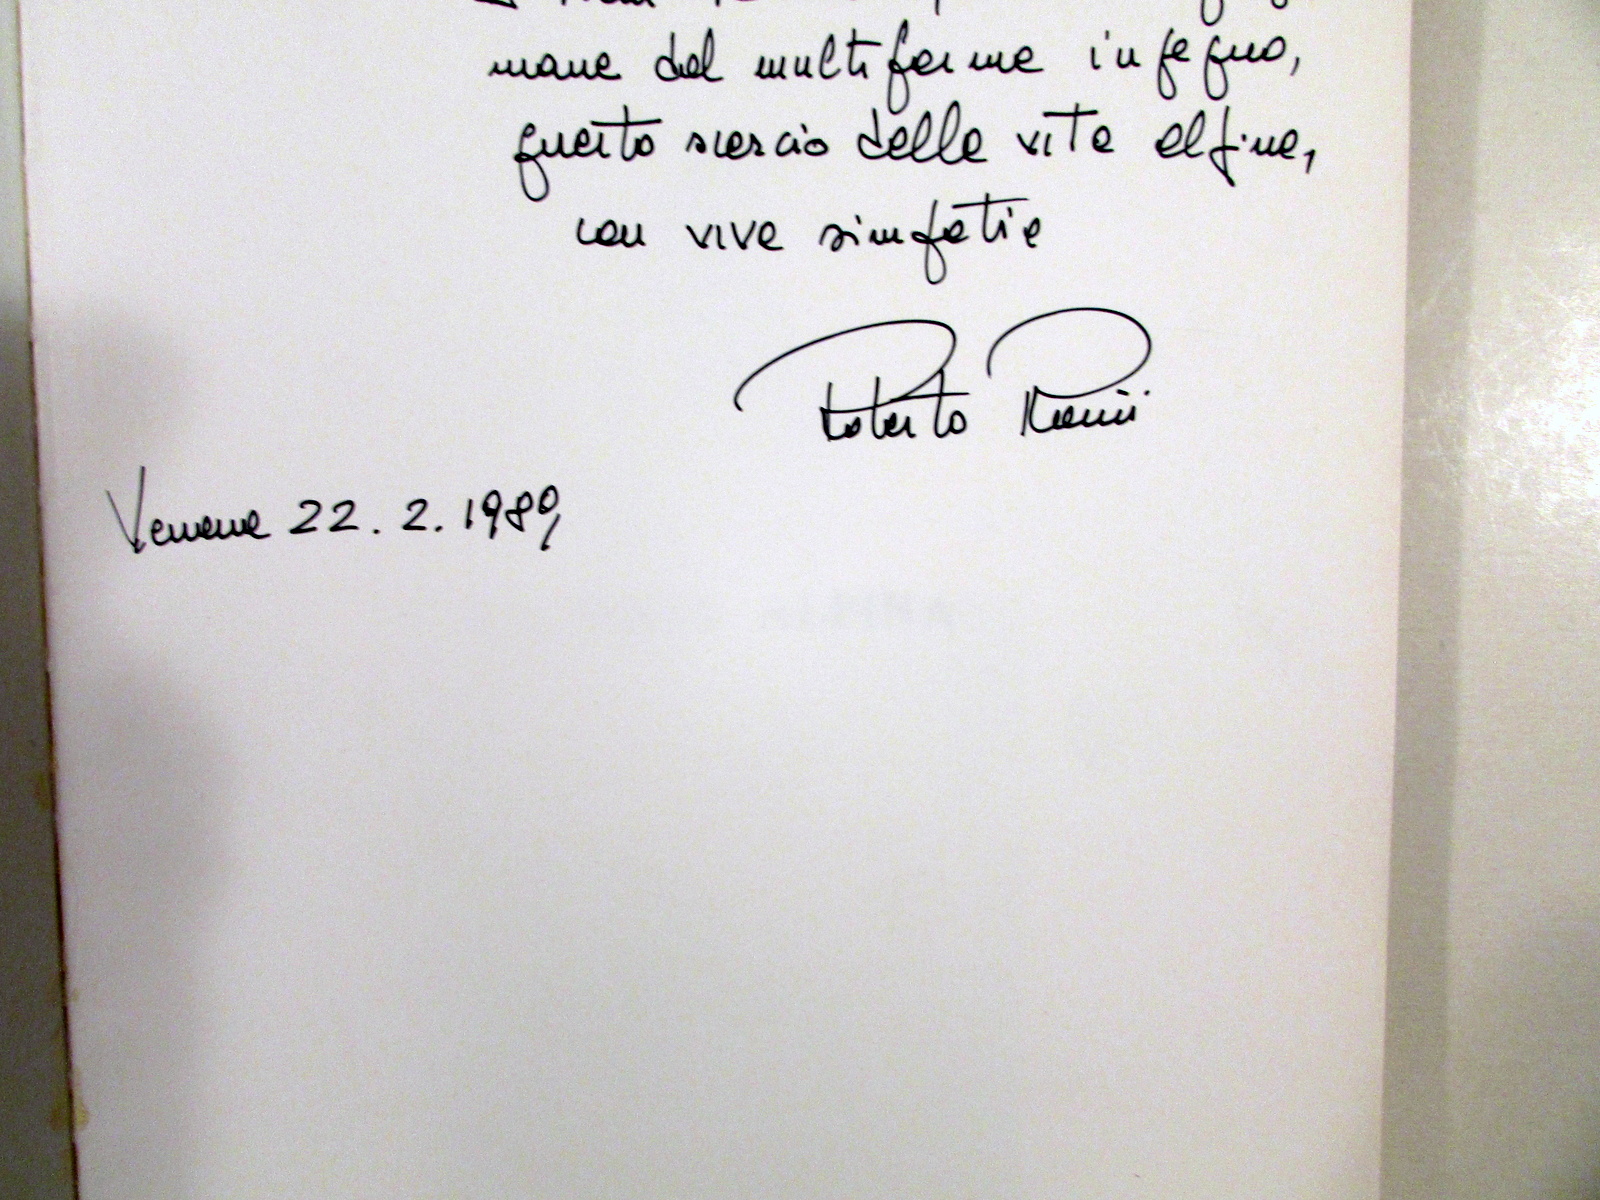 mane dal multiforme ingegno,
questo scorcio della vita alfine,
con viva simpatia
Roberto
22. 2. 1989